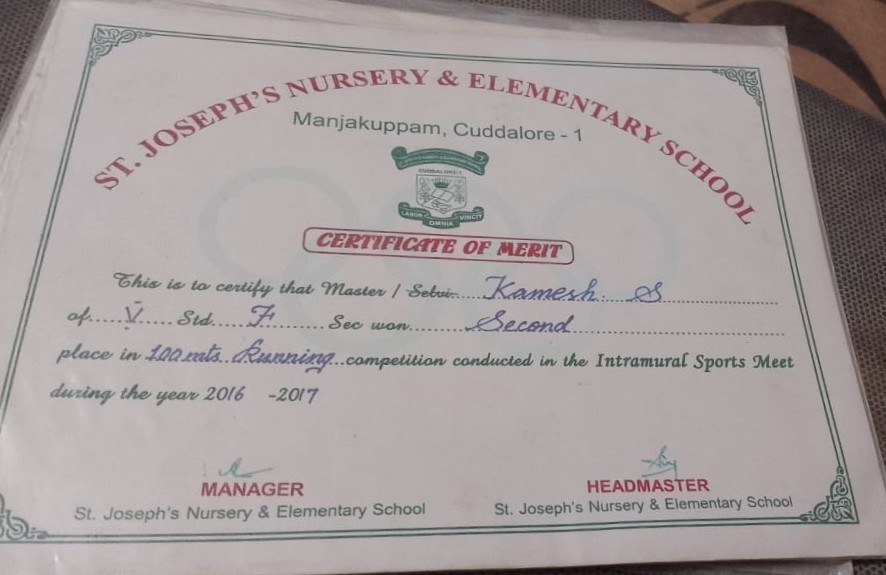 ST. JOSEPH'S NURSERY & ELEMENTARY SCHOOL
Manjakuppam, Cuddalore - 1
CUDDALORE-1
LABOR OMNIA VINCIT
CERTIFICATE OF MERIT
This is to certify that Master / Selvi......Kamesh. S..............
of.....V..... Std.....F......... Sec won..........Second..............
place in 100 mts. Running...competition conducted in the Intramural Sports Meet
during the year 2016 -2017
MANAGER
St. Joseph's Nursery & Elementary School
HEADMASTER
St. Joseph's Nursery & Elementary School